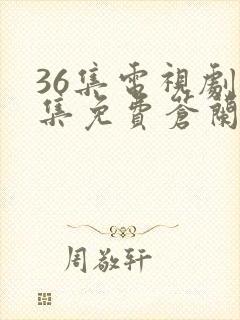 36集電視劇
集免費蒼蘭
周敬轩